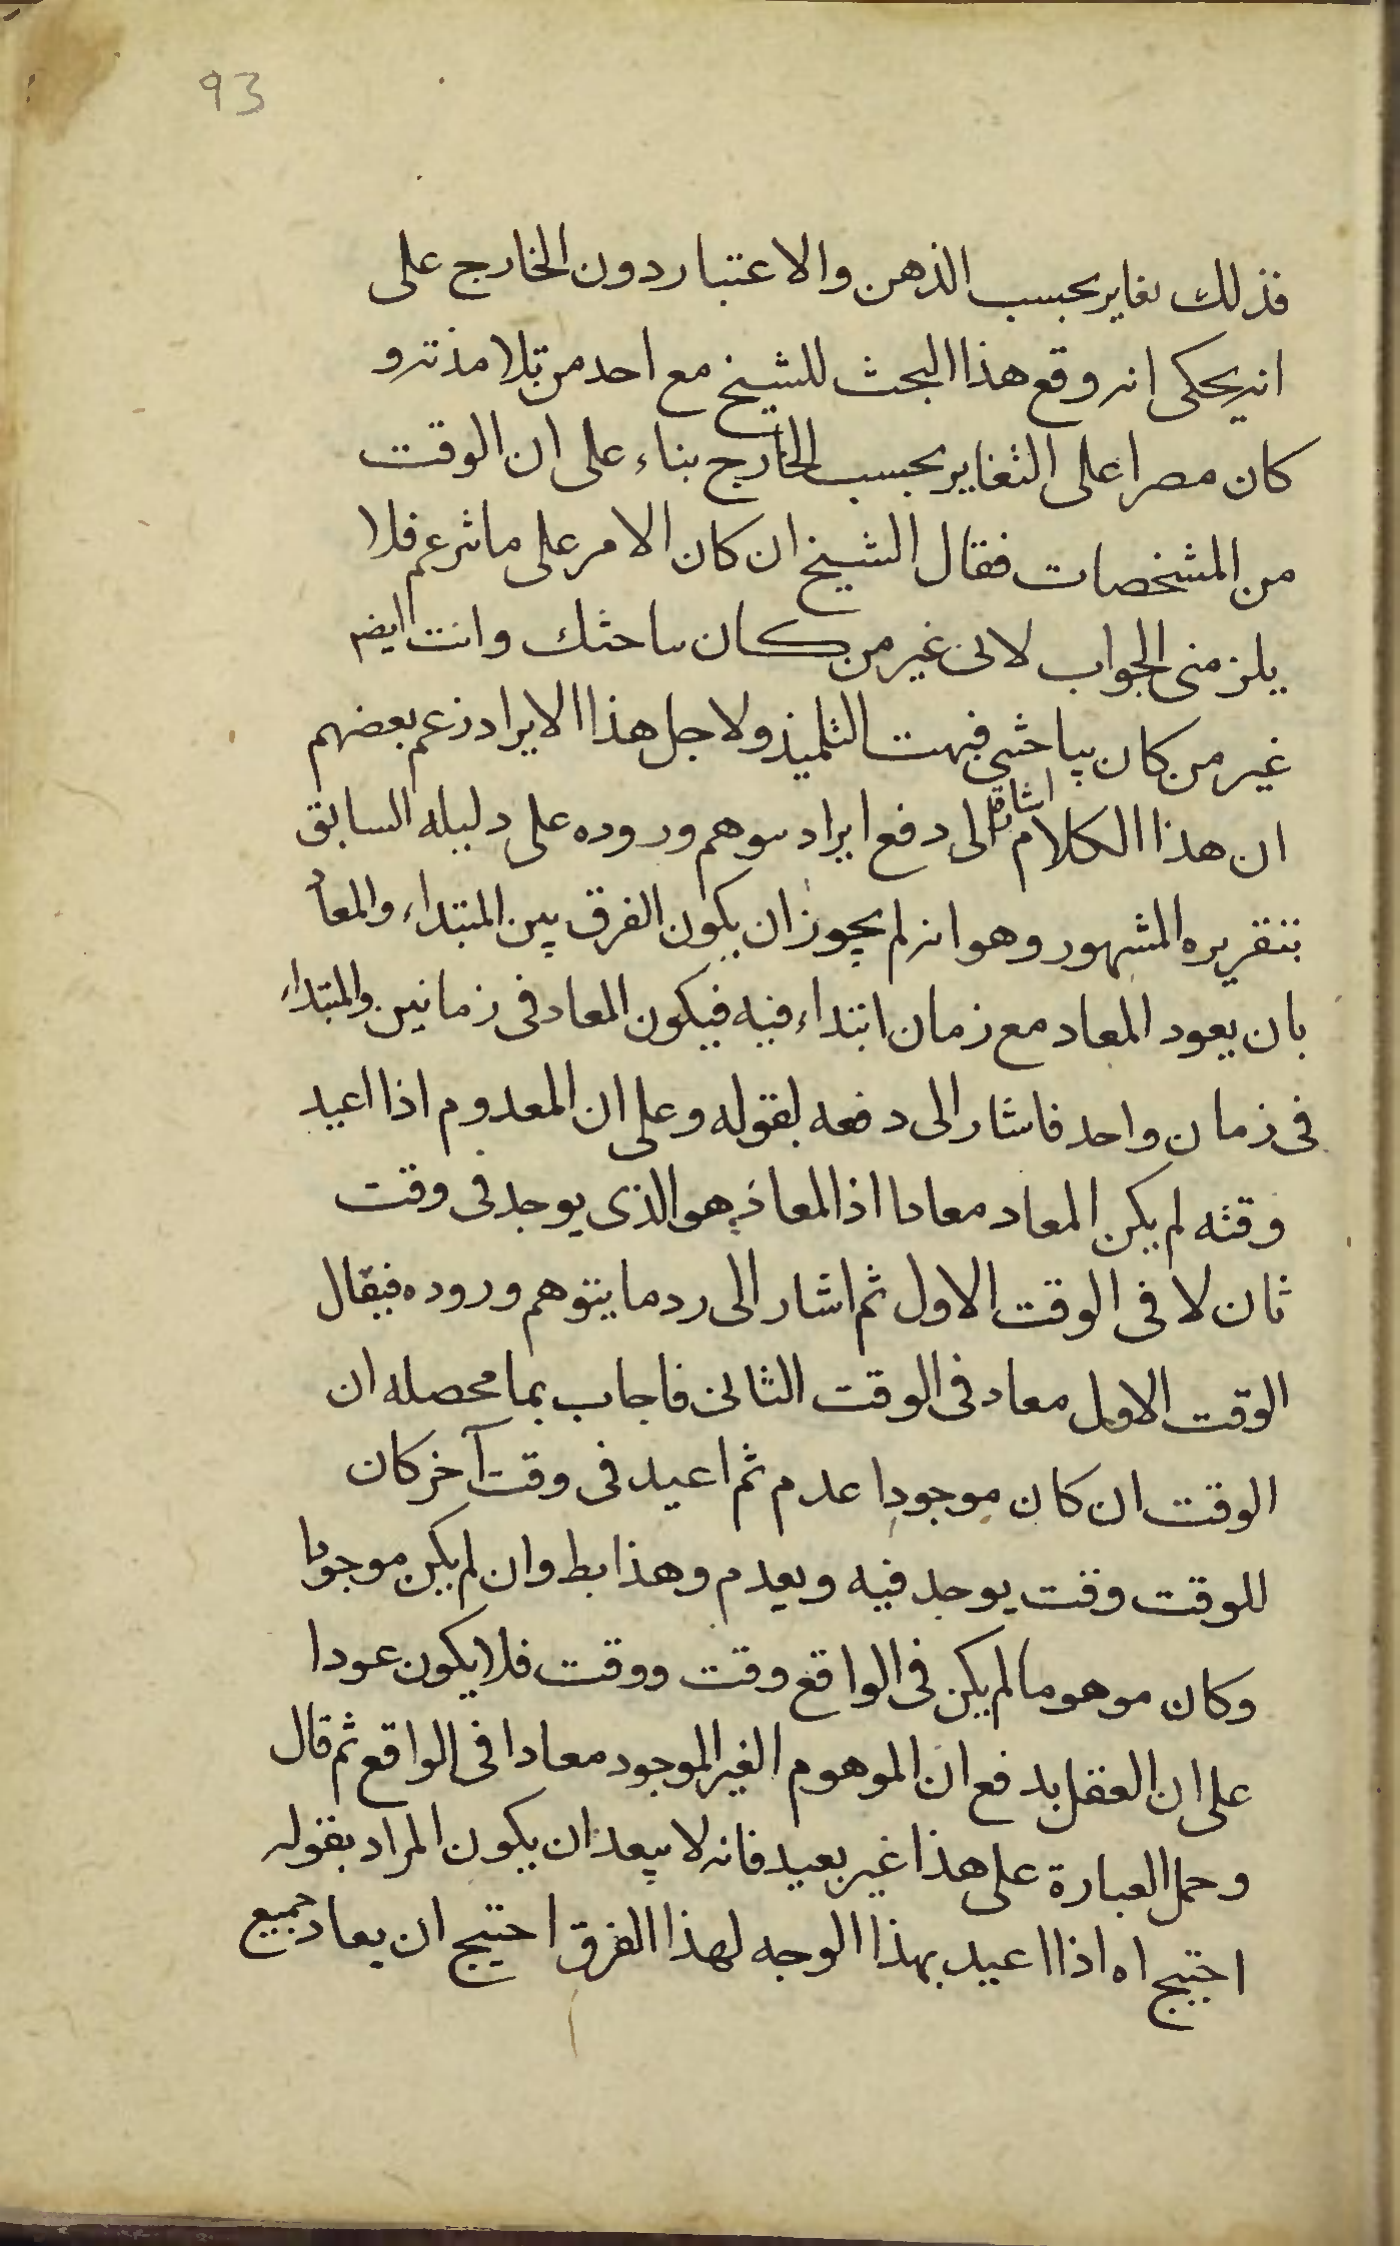 93
فذلك تغاير بحسب الذهن والاعتبار دون الخارج على
انه يحكى انه وقع هذا البحث للشيخ مع احد من تلامذته و
كان مصرا على التغاير بحسب الخارج بناء على ان الوقت
من المشخصات فقال الشيخ ان كان الامر على ما تزعم فلا
يلزمنى الجواب لانى غير من كان يباحثك وانت ايضم
غير من كان يباحثنى فبهت التلميذ ولاجل هذا الايراد زعم بعضهم
ان هذا الكلام اشارة الى دفع ايراد يتوهم وروده على دليله السابق
بتقريره المشهور وهو انه لم يجوز ان يكون الفرق بين المبتداء والمعاد
بان يعود المعاد مع زمان ابتداء فيه فيكون المعاد فى زمانين والمبتداء
فى زمان واحد فاشار الى دفعه بقوله وعلى ان المعدوم اذا اعيد
وقته لم يكن المعاد معادا اذ المعاد هو الذى يوجد فى وقت
ثان لا فى الوقت الاول ثم اشار الى رد ما يتوهم وروده فيقال
الوقت الاول معاد فى الوقت الثانى فاجاب بما محصله ان
الوقت ان كان موجودا عدم ثم اعيد فى وقت آخر كان
للوقت وقت يوجد فيه ويعدم وهذا بط وان لم يكن موجودا
وكان موهوما لم يكن فى الواقع وقت ووقت فلا يكون عودا
على ان العقل يدفع ان الموهوم الغير الموجود معادا فى الواقع ثم قال
وحمل العبارة على هذا غير بعيد فانه لا يبعد ان يكون المراد بقوله
احتيج اه اذا اعيد بهذا الوجه لهذا الفرق احتيج ان يعاد جميع